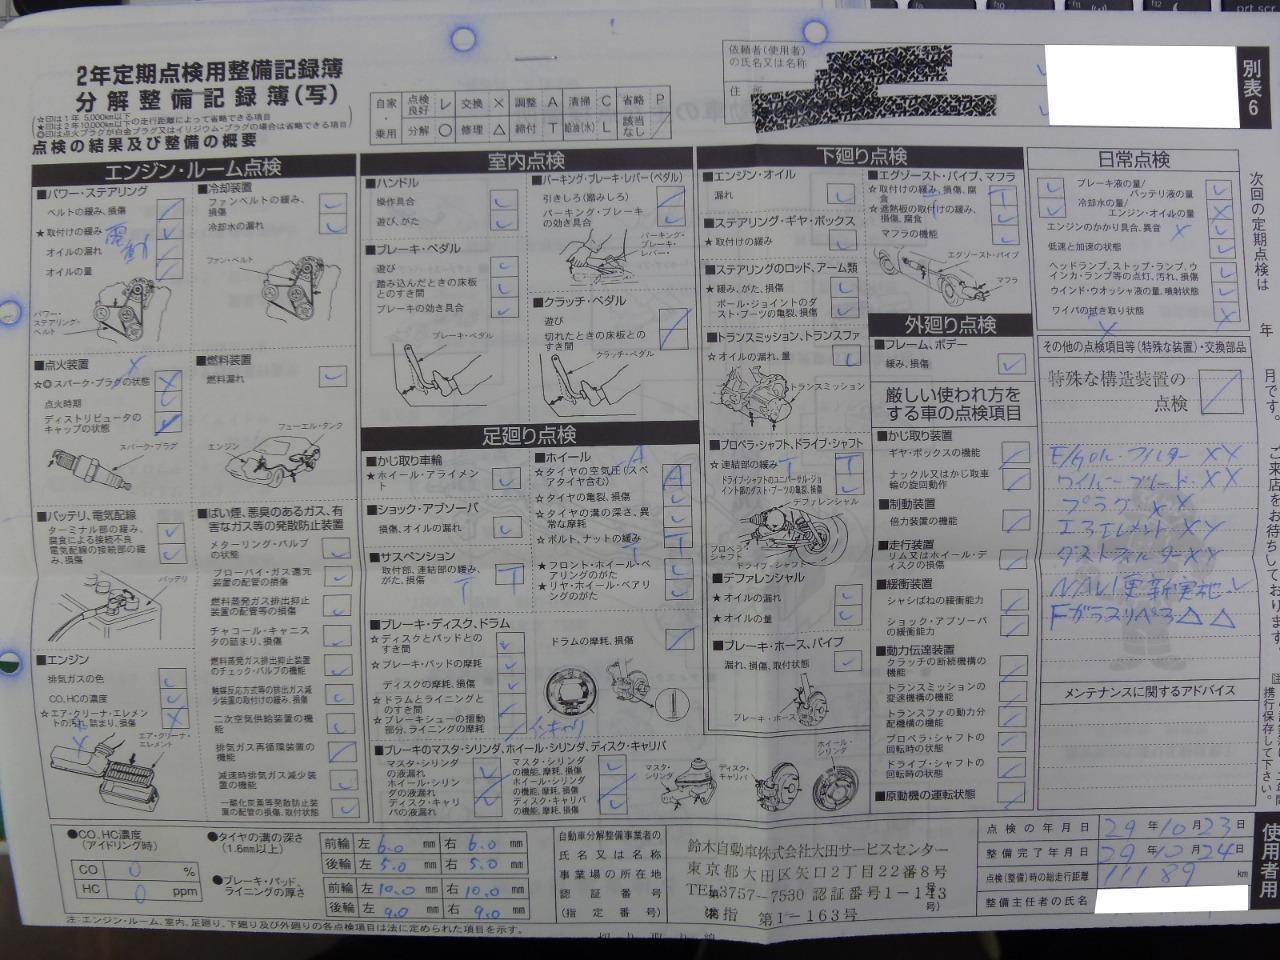 2年定期点検用整備記録簿
分解整備記録簿(写)
☆印は1年 5,000km以下
★印は2年10,000km以下の走行距離によって省略できる項目
◎印は点火プラグが白金プラグ又はイリジウム・プラグの場合は省略できる項目
点検の結果及び整備の概要
自家・乗用
点検良好 レ 交換 × 調整 A 清掃 C 省略 P
分解 ○ 修理 △ 締付 T 給油(水) L 該当なし /
依頼者(使用者)の氏名又は名称
住所
別表6
エンジン・ルーム点検
■パワー・ステアリング
ベルトの緩み、損傷
★取付けの緩み
電動
オイルの漏れ
オイルの量
パワー・ステアリング・ベルト
■冷却装置
ファンベルトの緩み、損傷
冷却水の漏れ
ファン・ベルト
■点火装置
☆◎スパーク・プラグの状態
点火時期
ディストリビュータのキャップの状態
スパーク・プラグ
■燃料装置
燃料漏れ
フューエル・タンク
エンジン
■バッテリ、電気配線
ターミナル部の緩み、腐食による接続不良
電気配線の接続部の緩み、損傷
バッテリ
■エンジン
排気ガスの色
CO、HCの濃度
☆エア・クリーナ・エレメントの汚れ、詰まり、損傷
エア・クリーナ・エレメント
■ばい煙、悪臭のあるガス、有害なガス等の発散防止装置
メターリング・バルブの状態
ブローバイ・ガス還元装置の配管の損傷
燃料蒸発ガス排出抑止装置の配管等の損傷
チャコール・キャニスタの詰まり、損傷
燃料蒸発ガス排出抑止装置のチェック・バルブの機能
触媒反応方式等の排出ガス減少装置の取付けの緩み、損傷
二次空気供給装置の機能
排気ガス再循環装置の機能
減速時排気ガス減少装置の機能
一酸化炭素等発散防止装置の配管の損傷、取付状態
室内点検
■ハンドル
操作具合
遊び、がた
■ブレーキ・ペダル
遊び
踏み込んだときの床板とのすき間
ブレーキの効き具合
ブレーキ・ペダル
■パーキング・ブレーキ・レバー(ペダル)
引きしろ(踏みしろ)
パーキング・ブレーキの効き具合
パーキング・ブレーキ・レバー
■クラッチ・ペダル
遊び
切れたときの床板とのすき間
クラッチ・ペダル
足廻り点検
■かじ取り車輪
★ホイール・アライメント
■ショック・アブソーバ
損傷、オイルの漏れ
■サスペンション
取付部、連結部の緩み、がた、損傷
T T
■ホイール
☆タイヤの空気圧(スペアタイヤ含む)
A
☆タイヤの亀裂、損傷
☆タイヤの溝の深さ、異常な摩耗
☆ボルト、ナットの緩み
T
★フロント・ホイール・ベアリングのがた
★リヤ・ホイール・ベアリングのがた
■ブレーキ・ディスク、ドラム
☆ディスクとパッドとのすき間
☆ブレーキ・パッドの摩耗
ディスクの摩耗、損傷
☆ドラムとライニングとのすき間
☆ブレーキシューの摺動部分、ライニングの摩耗
ドラムの摩耗、損傷
■ブレーキのマスタ・シリンダ、ホイール・シリンダ、ディスク・キャリパ
マスタ・シリンダの液漏れ
ホイール・シリンダの液漏れ
ディスク・キャリパの液漏れ
マスタ・シリンダの機能、摩耗、損傷
ホイール・シリンダの機能、摩耗、損傷
ディスク・キャリパの機能、摩耗、損傷
マスタ・シリンダ
ディスク・キャリパ
ホイール・シリンダ
下廻り点検
■エンジン・オイル
漏れ
■ステアリング・ギヤ・ボックス
★取付けの緩み
■ステアリングのロッド、アーム類
★緩み、がた、損傷
ボール・ジョイントのダスト・ブーツの亀裂、損傷
■トランスミッション、トランスファ
☆オイルの漏れ、量
トランスミッション
■プロペラ・シャフト、ドライブ・シャフト
☆連結部の緩み
T
ドライブ・シャフトのユニバーサル・ジョイント部のダスト・ブーツの亀裂、損傷
デファレンシャル
プロペラ・シャフト
ドライブ・シャフト
■デファレンシャル
★オイルの漏れ
★オイルの量
■ブレーキ・ホース、パイプ
漏れ、損傷、取付状態
ブレーキ・ホース
■エグゾースト・パイプ、マフラ
☆取付けの緩み、損傷、腐食
T
☆遮熱板の取付けの緩み、損傷、腐食
マフラの機能
エグゾースト・パイプ
マフラ
外廻り点検
■フレーム、ボデー
緩み、損傷
厳しい使われ方をする車の点検項目
■かじ取り装置
ギヤ・ボックスの機能
ナックル又はかじ取車輪の旋回動作
■制動装置
倍力装置の機能
■走行装置
リム又はホイール・ディスクの損傷
■緩衝装置
シャシばねの緩衝能力
ショック・アブソーバの緩衝能力
■動力伝達装置
クラッチの断続機構の機能
トランスミッションの変速機構の機能
トランスファの動力分配機構の機能
プロペラ・シャフトの回転時の状態
ドライブ・シャフトの回転時の状態
■原動機の運転状態
日常点検
ブレーキ液の量/バッテリ液の量
冷却水の量/エンジン・オイルの量
エンジンのかかり具合、異音
低速と加速の状態
ヘッドランプ、ストップ・ランプ、ウインカ・ランプ等の点灯、汚れ、損傷
ウインド・ウオッシャ液の量、噴射状態
ワイパの拭き取り状態
その他の点検項目等(特殊な装置)・交換部品
特殊な構造装置の点検
プラグ
エアエレメント
ダストフィルター
NAVI更新実施
Fガラスリペア △ △
メンテナンスに関するアドバイス
次回の定期点検は 年 月です。ご来店をお待ちしております。
携行保存して下さい。
●CO、HC濃度(アイドリング時)
CO 0 %
HC 0 ppm
●タイヤの溝の深さ(1.6mm以上)
前輪 左 6.0 mm 右 6.0 mm
後輪 左 5.0 mm 右 5.0 mm
●ブレーキ・パッド、ライニングの厚さ
前輪 左 10.0 mm 右 10.0 mm
後輪 左 9.0 mm 右 9.0 mm
自動車分解整備事業者の氏名又は名称
事業場の所在地
認証番号
(指定番号)
鈴木自動車株式会社大田サービスセンター
東京都大田区矢口2丁目22番8号
TEL 3757-7530 認証番号1-143号
第1-163号
点検の年月日 29年10月23日
整備完了年月日 29年10月24日
点検(整備)時の総走行距離 11189 km
整備主任者の氏名
使用者用
注:エンジン・ルーム、室内、足廻り、下廻り及び外廻りの各点検項目は法に定められた項目を示す。